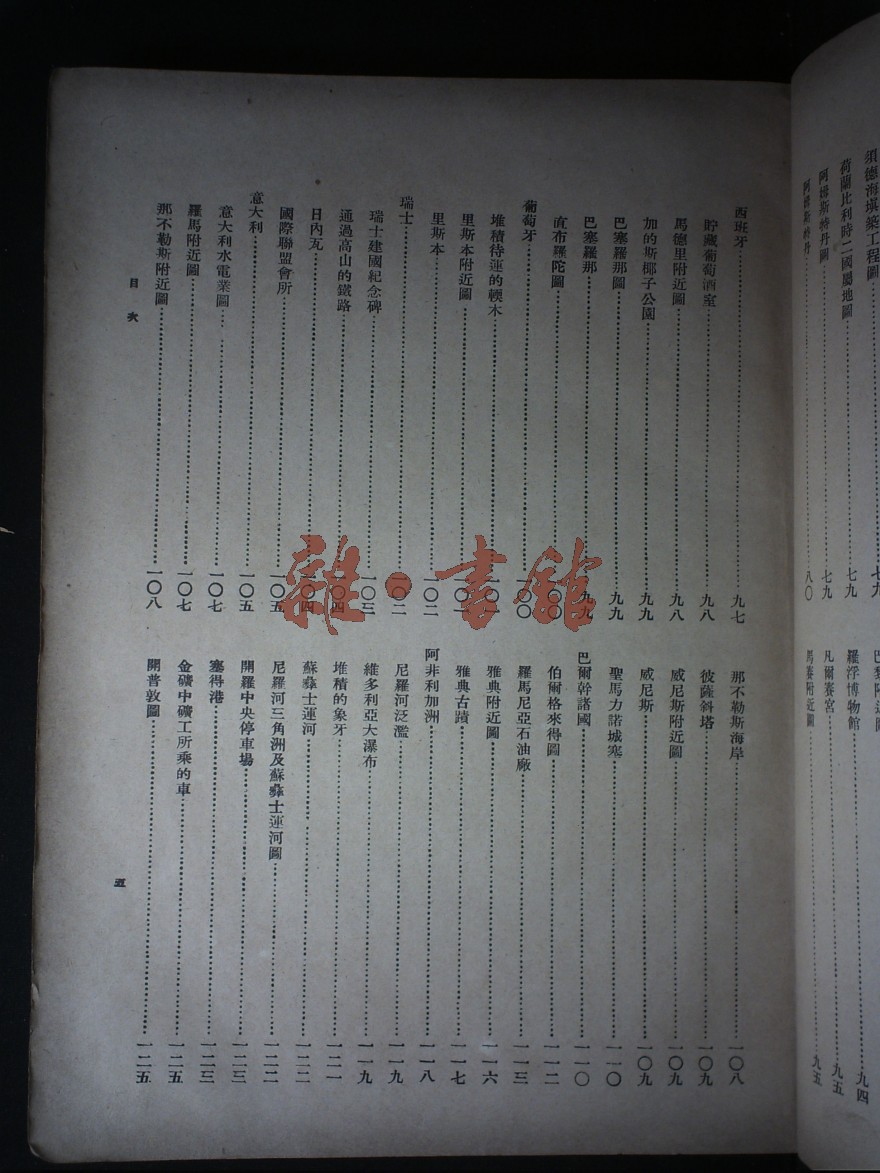 須德海築工程圖 七九
荷蘭比利時二國屬地圖 七九
阿姆斯特丹圖 七九
阿姆斯特丹 八〇
巴黎附近圖
羅浮博物館 九四
凡爾賽宮 九五
馬賽附近圖 九五
西班牙 九七
貯藏葡萄酒室 九八
馬德里附近圖 九八
加的斯椰子公園 九九
巴塞羅那圖 九九
巴塞羅那 九九
直布羅陀圖 一〇〇
葡萄牙 一〇〇
堆積待運的輭木 一〇一
里斯本附近圖 一〇一
里斯本 一〇二
瑞士 一〇二
瑞士建國紀念碑 一〇三
通過高山的鐵路 一〇四
日內瓦 一〇四
國際聯盟會所 一〇五
意大利 一〇五
意大利水電業圖 一〇七
羅馬附近圖 一〇七
那不勒斯附近圖 一〇八
那不勒斯海岸 一〇八
彼薩斜塔 一〇九
威尼斯附近圖 一〇九
威尼斯 一〇九
聖馬力諾城寨 一一〇
巴爾幹諸國 一一〇
伯爾格來得圖 一一二
羅馬尼亞石油廠 一一三
雅典附近圖 一一六
雅典古蹟 一一七
阿非利加洲 一一八
尼羅河泛濫 一一九
維多利亞大瀑布 一一九
堆積的象牙 一二一
蘇彝士運河 一二二
尼羅河三角洲及蘇彝士運河圖 一二二
開羅中央停車場 一二三
塞得港 一二三
金礦中礦工所乘的車 一二五
開普敦圖 一二五
目次
五
雜·書館